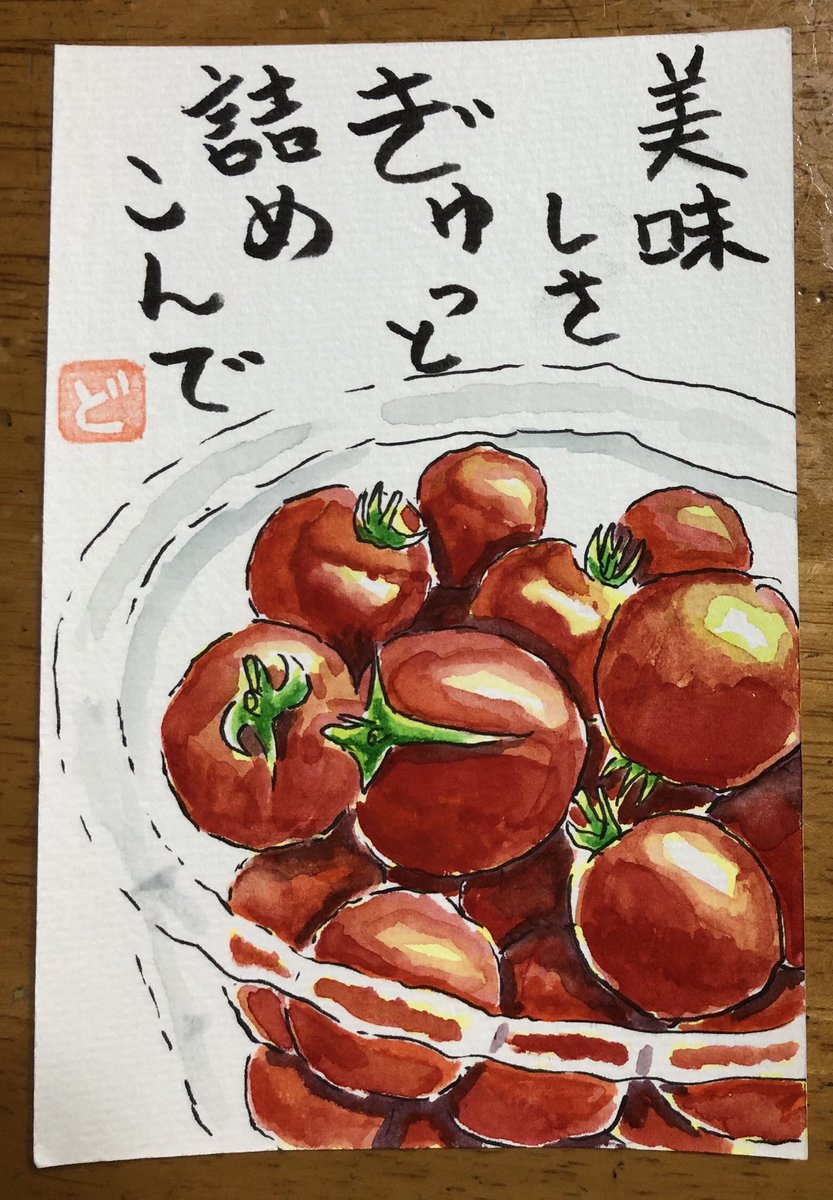 美味
しさ
ぎゅっと
詰め
こんで
ど